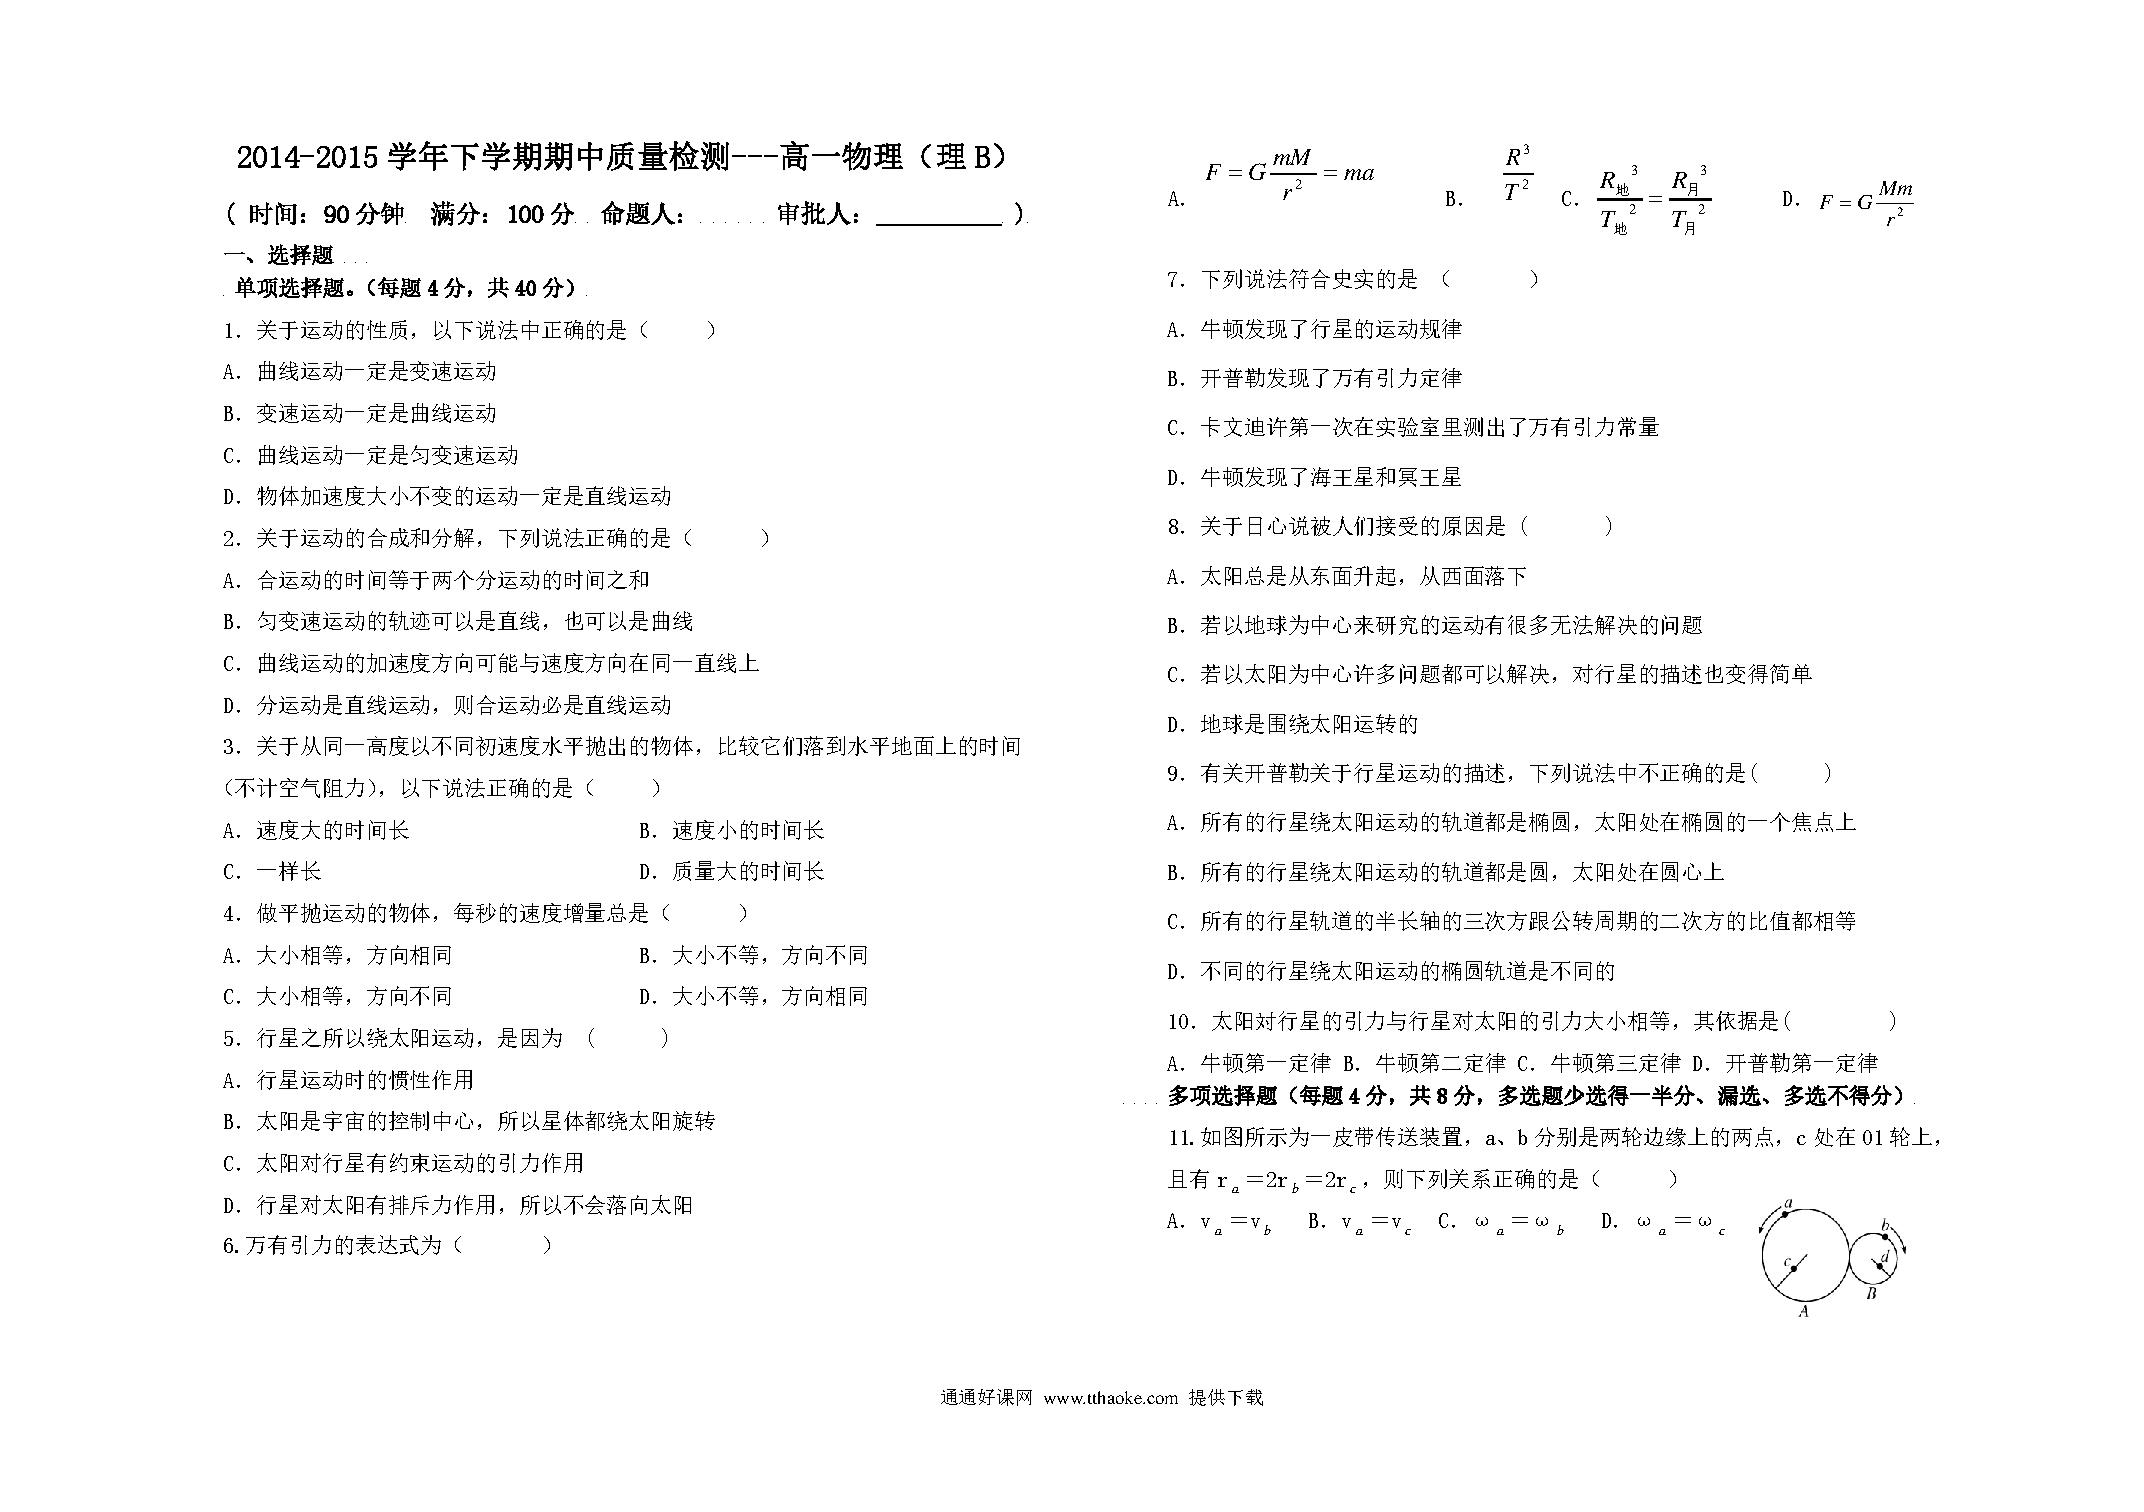 2014-2015学年下学期期中质量检测---高一物理（理B）
( 时间：90分钟 满分：100分 命题人： 审批人：__________ )
一、选择题
单项选择题。（每题4分，共40分）
1．关于运动的性质，以下说法中正确的是（ ）
A．曲线运动一定是变速运动
B．变速运动一定是曲线运动
C．曲线运动一定是匀变速运动
D．物体加速度大小不变的运动一定是直线运动
2．关于运动的合成和分解，下列说法正确的是（ ）
A．合运动的时间等于两个分运动的时间之和
B．匀变速运动的轨迹可以是直线，也可以是曲线
C．曲线运动的加速度方向可能与速度方向在同一直线上
D．分运动是直线运动，则合运动必是直线运动
3．关于从同一高度以不同初速度水平抛出的物体，比较它们落到水平地面上的时间
（不计空气阻力），以下说法正确的是（ ）
A．速度大的时间长 B．速度小的时间长
C．一样长 D．质量大的时间长
4．做平抛运动的物体，每秒的速度增量总是（ ）
A．大小相等，方向相同 B．大小不等，方向不同
C．大小相等，方向不同 D．大小不等，方向相同
5．行星之所以绕太阳运动，是因为 （ ）
A．行星运动时的惯性作用
B．太阳是宇宙的控制中心，所以星体都绕太阳旋转
C．太阳对行星有约束运动的引力作用
D．行星对太阳有排斥力作用，所以不会落向太阳
6.万有引力的表达式为（ ）
A． F = G mM/r² = ma B． R³/T² C．R地³/T地² = R月³/T月² D．F = G Mm/r²
7．下列说法符合史实的是 （ ）
A．牛顿发现了行星的运动规律
B．开普勒发现了万有引力定律
C．卡文迪许第一次在实验室里测出了万有引力常量
D．牛顿发现了海王星和冥王星
8．关于日心说被人们接受的原因是 ( )
A．太阳总是从东面升起，从西面落下
B．若以地球为中心来研究的运动有很多无法解决的问题
C．若以太阳为中心许多问题都可以解决，对行星的描述也变得简单
D．地球是围绕太阳运转的
9．有关开普勒关于行星运动的描述，下列说法中不正确的是( )
A．所有的行星绕太阳运动的轨道都是椭圆，太阳处在椭圆的一个焦点上
B．所有的行星绕太阳运动的轨道都是圆，太阳处在圆心上
C．所有的行星轨道的半长轴的三次方跟公转周期的二次方的比值都相等
D．不同的行星绕太阳运动的椭圆轨道是不同的
10．太阳对行星的引力与行星对太阳的引力大小相等，其依据是( )
A．牛顿第一定律 B．牛顿第二定律 C．牛顿第三定律 D．开普勒第一定律
多项选择题（每题4分，共8分，多选题少选得一半分、漏选、多选不得分）
11.如图所示为一皮带传送装置，a、b分别是两轮边缘上的两点，c处在O1轮上，
且有r a＝2r b＝2r c，则下列关系正确的是（ ）
A．v a＝v b B．v a＝v c C．ω a＝ω b D．ω a＝ω c
a
b
c
d
B
A
通通好课网 www.tthaoke.com 提供下载